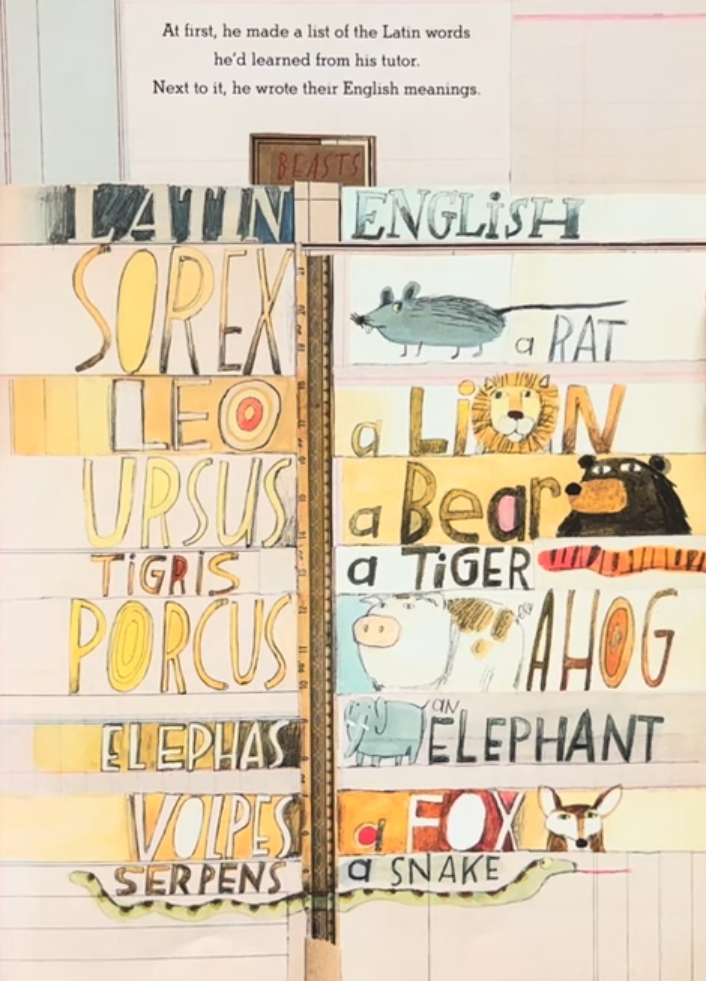 At first, he made a list of the Latin words
he'd learned from his tutor.
Next to it, he wrote their English meanings.
BEASTS
LATIN ENGLiSH
SOREX a RAT
LEO a LiON
URSUS a Bear
TiGRIS a TiGER
PORCUS A HOG
ELEPHAS an ELEPHANT
VOLPES a FOX
SERPENS a SNAKE